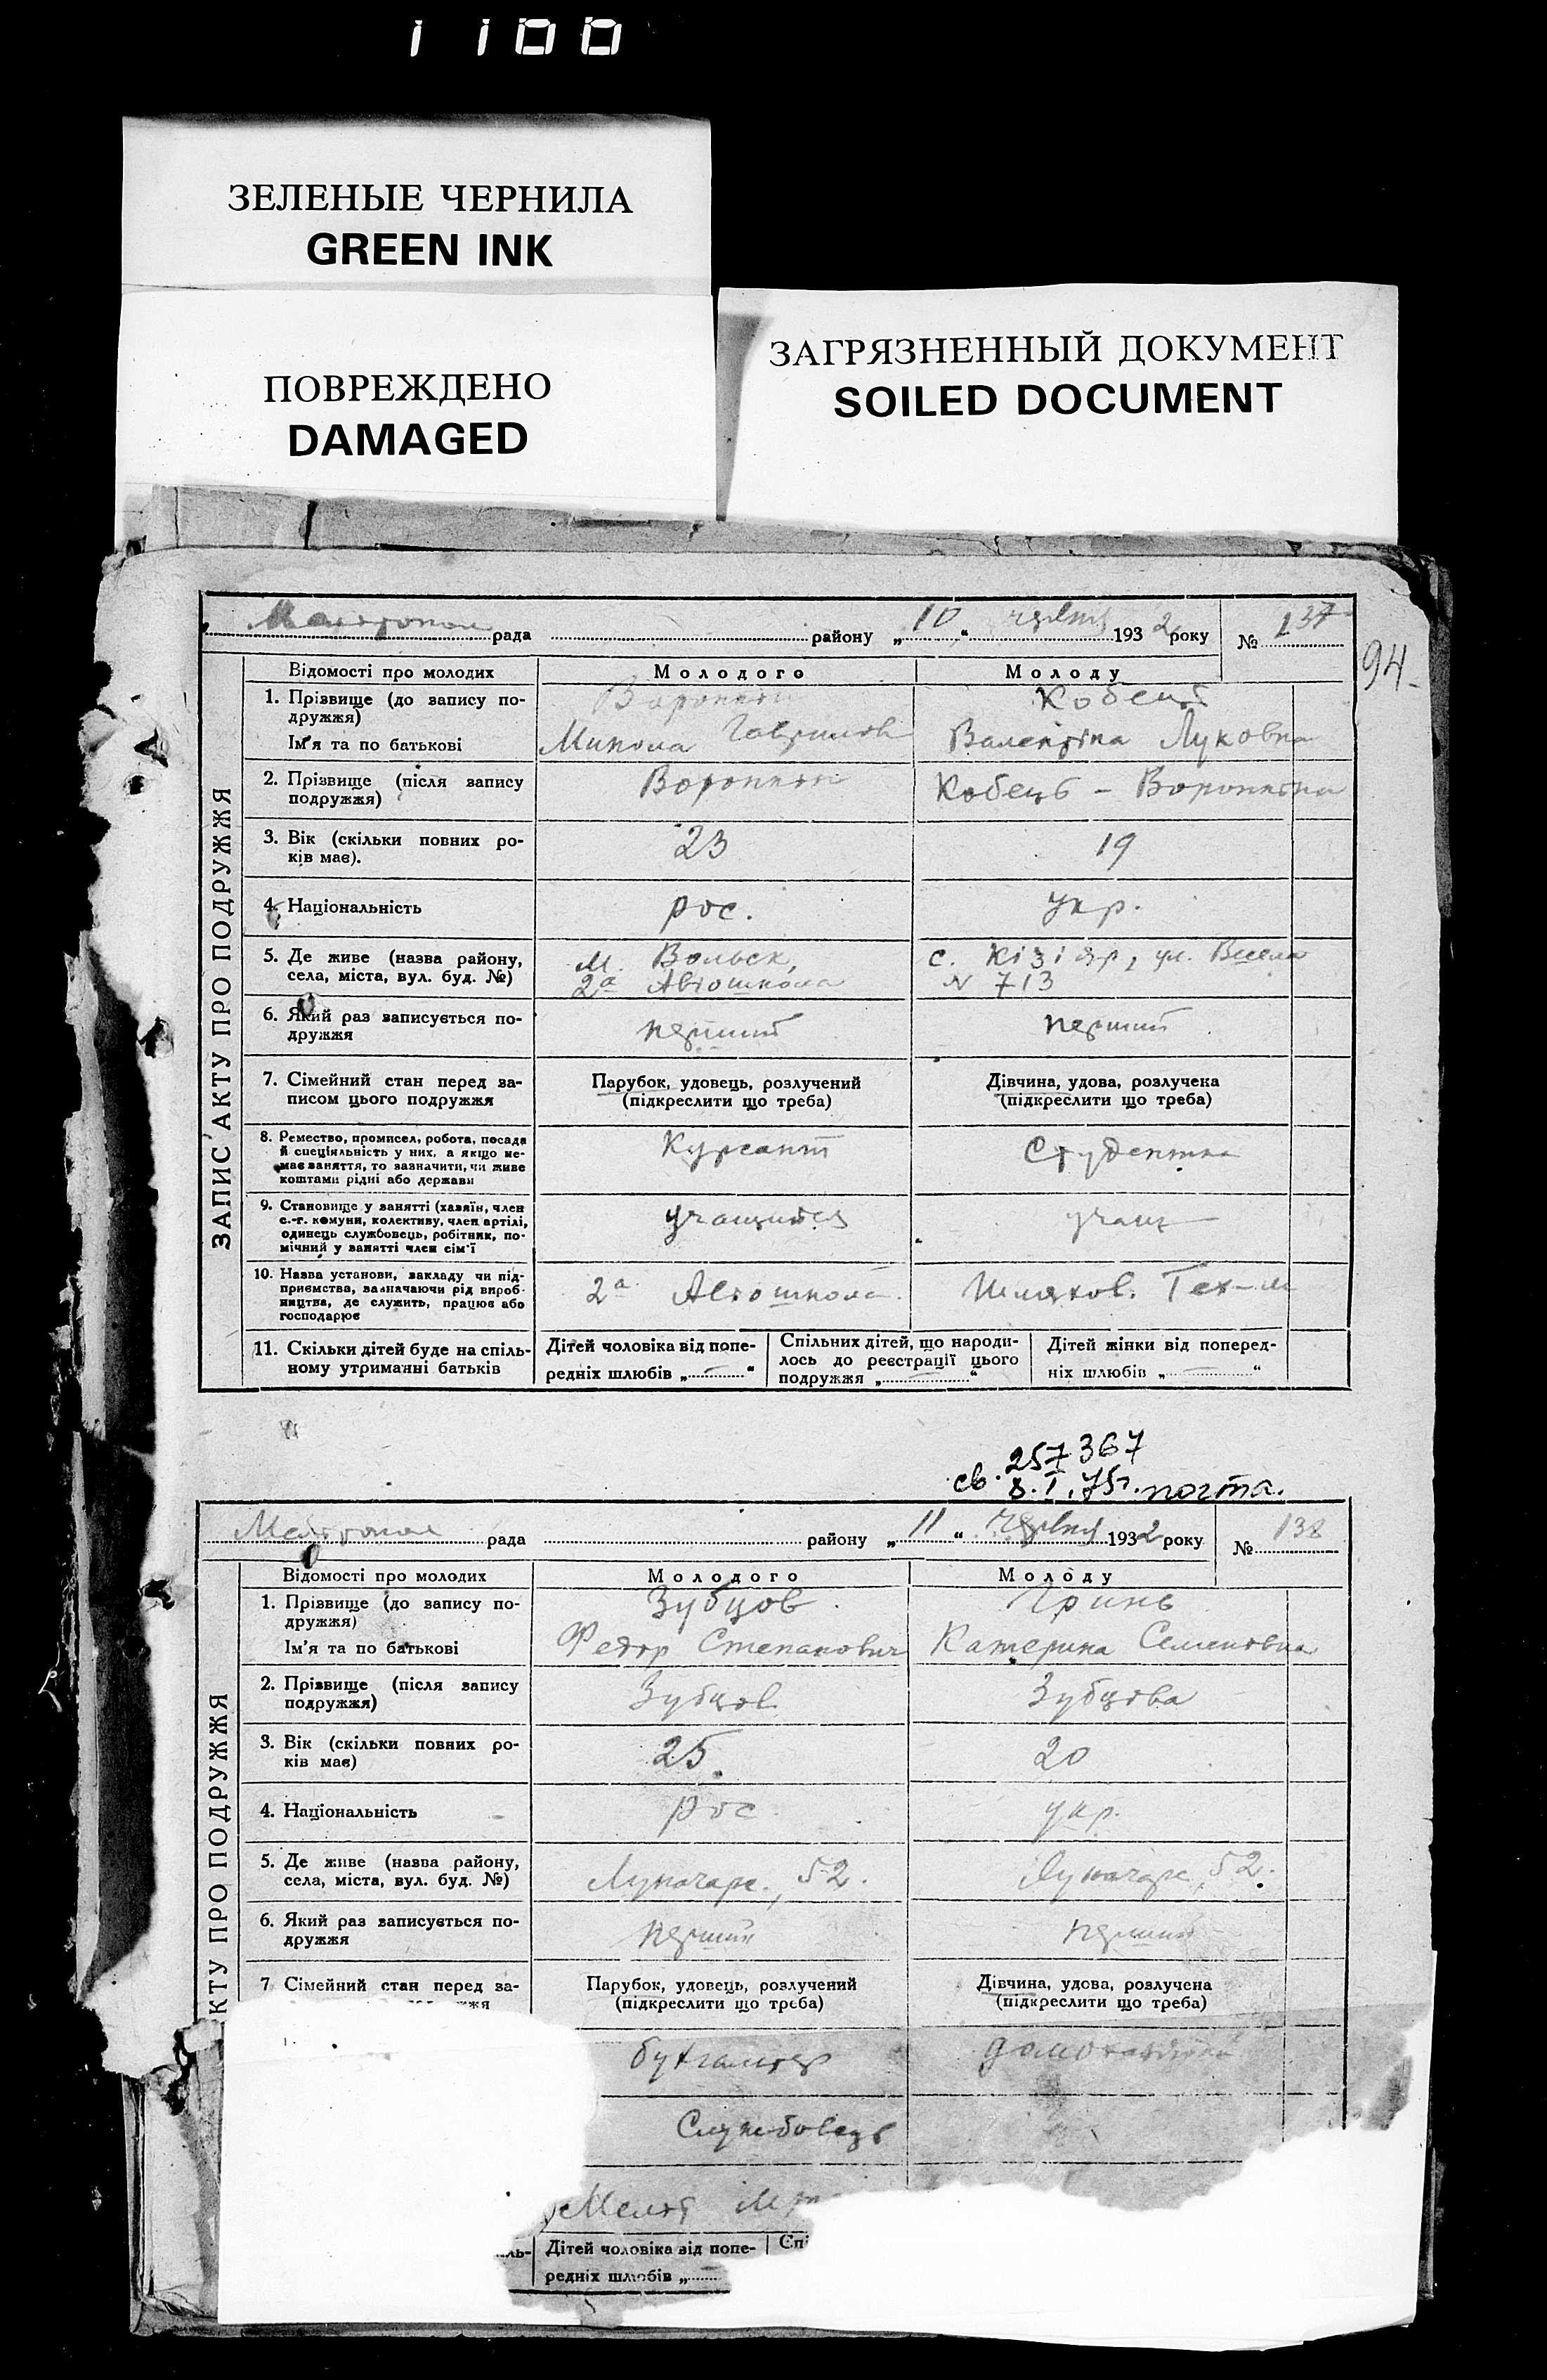 1 100
ЗЕЛЕНЫЕ ЧЕРНИЛА
GREEN INK
ПОВРЕЖДЕНО
DAMAGED
ЗАГРЯЗНЕННЫЙ ДОКУМЕНТ
SOILED DOCUMENT
рада району „10“ червня 1932 року № 137
94
ЗАПИС АКТУ ПРО ПОДРУЖЖЯ
Відомості про молодих Молодого Молоду
1. Прізвище (до запису по-
дружжя) Кобець
Ім'я та по батькові Микола Гаврилов Валентіна Луковна
2. Прізвище (після запису
подружжя) Кобець –
3. Вік (скільки повних ро-
ків має). 23 19
4. Національність рос. укр.
5. Де живе (назва району, м. Вольск, с. Кізіяр, ул. Весела
села, міста, вул. буд. №) 2а Автошкола N 713
6. Який раз записується по-
дружжя перший перший
7. Сімейний стан перед за- Парубок, удовець, розлучений Дівчина, удова, розлучена
писом цього подружжя (підкреслити що треба) (підкреслити що треба)
8. Ремество, промисел, робота, посада
й спеціяльність у них, а якщо не- Курсант Студентка
має заняття, то зазначити, чи живе
коштами рідні або держави
9. Становище у занятті (хазяїн, член
с.-г. комуни, колективу, член артілі, учащийся учащ
одинець службовець, робітник, по-
мічний у занятті член сім'ї
10. Назва установи, закладу чи під-
приємства, зазначаючи рід вироб- 2а Автошкола. Шляхов. Тех-м
ництва, де служить, працює або
господарює
11. Скільки дітей буде на спіль- Дітей чоловіка від попе- Спільних дітей, що народи- Дітей жінки від поперед-
ному утриманні батьків редніх шлюбів „—“ лось до реєстрації цього ніх шлюбів „—“
подружжя „—“
257367
св. 8.I.75г. почта.
рада району „11“ червня 1932 року № 138
КТУ ПРО ПОДРУЖЖЯ
Відомості про молодих Молодого Молоду
1. Прізвище (до запису по- Зубцов Гринь
дружжя)
Ім'я та по батькові Федор Степанович Катерина Семеновна
2. Прізвище (після запису Зубцов Зубцова
подружжя)
3. Вік (скільки повних ро- 25 20
ків має)
4. Національність рос укр.
5. Де живе (назва району,
села, міста, вул. буд. №) Луначарс., 52. Луначарс, 52.
6. Який раз записується по- перший перший
дружжя
7 Сімейний стан перед за- Парубок, удовець, розлучений Дівчина, удова, розлучена
жжя (підкреслити що треба) (підкреслити що треба)
бухгалтер
Службовець
Дітей чоловіка від попе- Спі
редніх шлюбів „